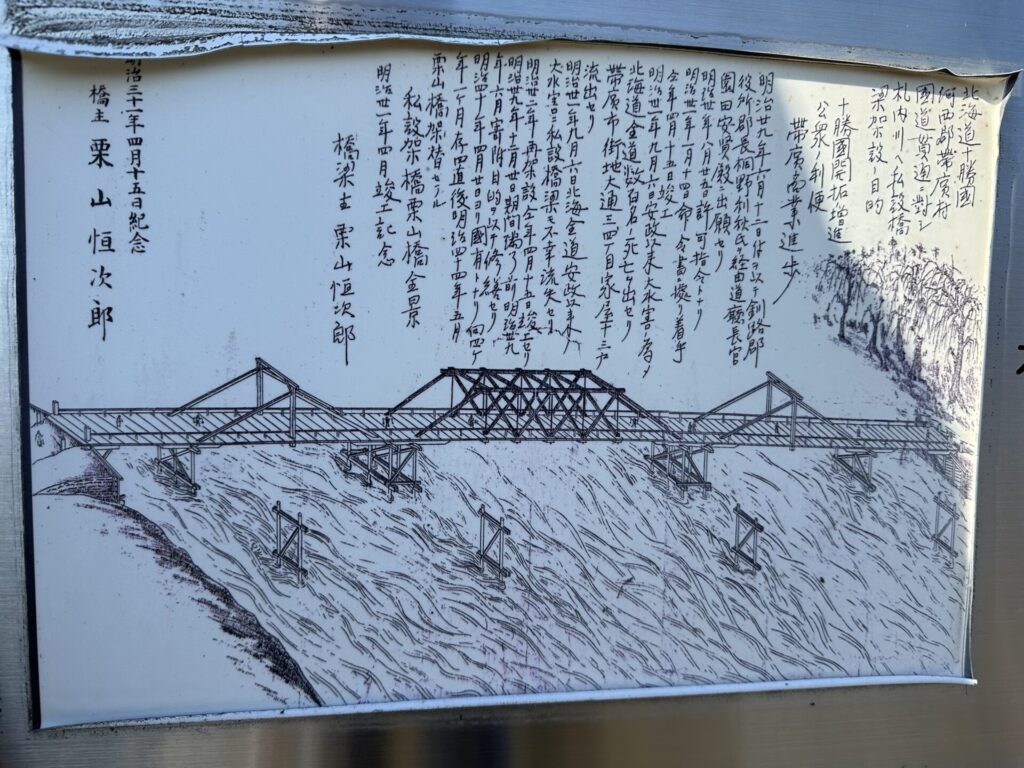 北海道十勝國
河西郡帯廣村
國道貫通ニ對シ
札内川ヘ私設橋
梁架設ノ目的
十勝國開拓増進
公衆ノ利便
帯廣商業進歩
明治廿九年六月十二日付ヲ以テ釧路郡
役所郡長桐野利秋氏ヲ経由道廳長官
園田安賢殿ニ出願セリ
明治廿年八月廿五日許可指令トナリ
明治廿一年一月十四日命令書據リ着手
仝年四月十五日竣工
明治廿一年九月六日安政以来大水害ノ為メ
北海道全道数百名ノ死亡ヲ出セリ
帯廣市市街地大通三四丁目家屋十三戸
流出セリ
明治廿一年九月六日北海全道安政以来ノ
大水害ニ私設橋梁モ不幸流失セリ
明治廿二年再架設仝年四月十五日竣工セリ
明治廿九年十二月廿日期間満了ノ所明治廿九
年六月寄附ノ目的ヲ以テ修繕セリ
明治四十年四月廿日ヨリ國有トナリ向四ヶ
年一ヶ月存四直後明治四十四年五月
栗山橋架替セラル
私設架橋栗山橋全景
明治廿一年四月竣工記念
橋梁主 栗山恒次郎
明治三十一年四月十五日紀念
橋主 栗山恒次郎